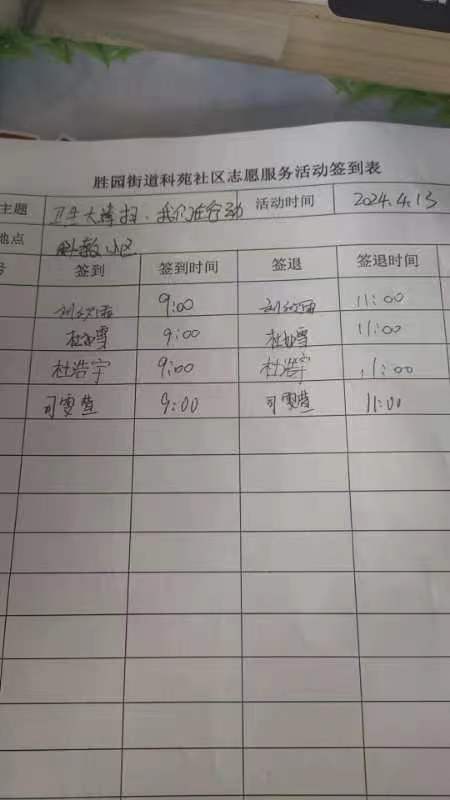 胜园街道科苑社区志愿服务活动签到表
主题 卫生大扫扫,我们在行动 活动时间 2024.4.13
地点 科教小区
号 签到 签到时间 签退 签退时间
9:00 11:00
9:00 11:00
杜浩宇 9:00 杜浩宇 11:00
司雯萱 9:00 司雯萱 11:00